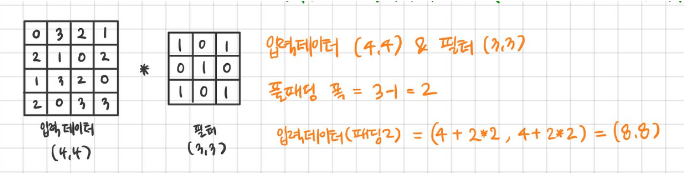 0 3 2 1
2 1 0 2
1 3 2 0
2 0 3 3
입력데이터
(4,4)
*
1 0 1
0 1 0
1 0 1
필터
(3,3)
입력데이터 (4,4) & 필터 (3,3)
풀패딩 폭 = 3-1 = 2
입력데이터(패딩2) = (4+2*2, 4+2*2) = (8.8)